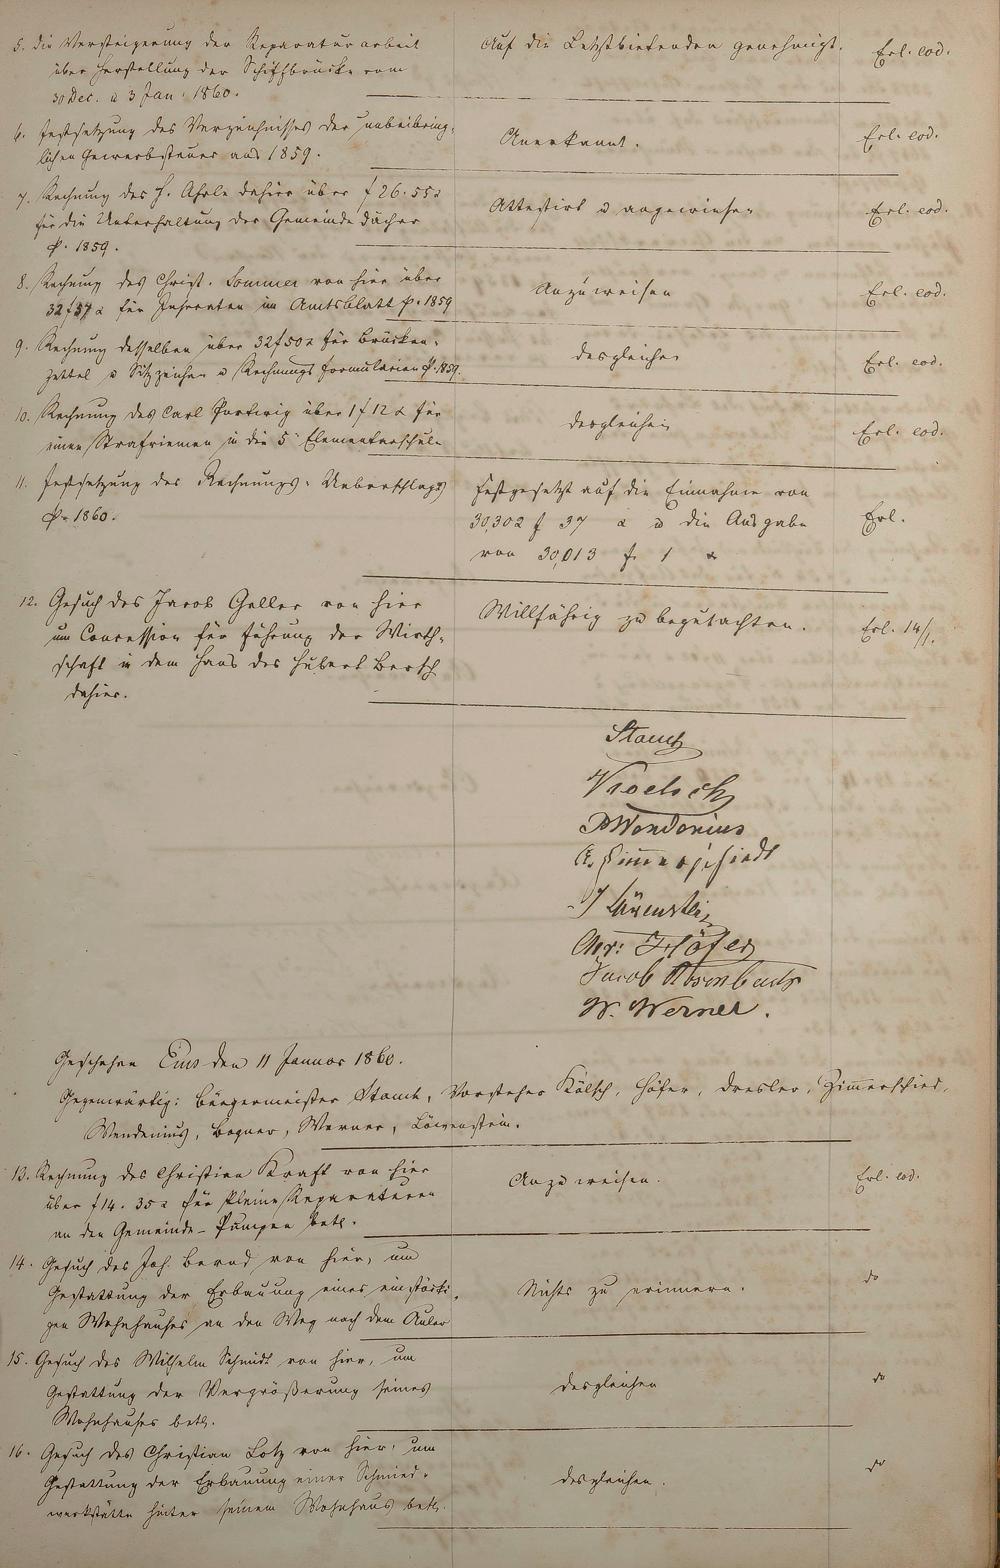 5. die Versteigerung der Reparaturarbeit
über Herstellung der Schiffbrücke vom
30 Dec. u 3 Jan. 1860.
Auf die Letztbietenden genehmigt.
Erl. eod.
6. Festsetzung des Verzeichnisses der unbeibring-
lichen Gewerbsteuer aus 1859.
Anerkannt.
Erl. eod.
7. Rechnung des H. dahier über f 26. 55 x
für die Unterhaltung der Gemeinde Dächer
p. 1859.
Attestirt u angewiesen
Erl. eod.
8. Rechnung des Christ. Sommer von hier über
32 f 57 x für Inseraten im Amtsblatt p. 1859
Anzuweisen
Erl. eod.
9. Rechnung desselben über 32 f 50 x für Brücken-
zettel u Sitzzeichen u Rechnungsformularien p. 1859.
desgleichen
Erl. eod.
10. Rechnung des Carl über 1 f 12 x für
einen Strafriemen in die 5. Elementarschule
desgleichen
Erl. eod.
11. Festsetzung des Rechnungs-Ueberschlags
p. 1860.
Festgesetzt auf die Einnahme von
30,302 f 37 x u die Ausgabe
von 30,013 f 1 x
Erl.
12. Gesuch des Jacob Geller von hier
um Concession für Führung der Wirth-
schaft in dem Haus des Hubert Bersch
dahier.
Willfährig zu begutachten.
Erl. 14/1.
Stamt
Kroelsch
P Wendenius
Zimmerschiedt
J Löwenstein
Höfer
Jacob
W. Werner.
Geschehen Ems den 11 Januar 1860.
Gegenwärtig: Bürgermeister Stamt, Vorsteher Kölsch, Höfer, Dresler, Zimerschied,
Wendenius, Bogner, Werner, Löwenstein.
13. Rechnung des Christian Kraft von hier
über f 14. 35 x für kleine Reparaturen
an den Gemeinde-Pumpen betr.
Anzuweisen.
Erl. eod.
14. Gesuch des Joh. Bernd von hier, um
Gestattung der Erbauung eines einstöcki-
gen Wohnhauses an den Weg nach dem
Nichts zu erinnern.
do
15. Gesuch des Wilhelm Schmidt von hier, um
Gestattung der Vergrößerung seines
Wohnhauses betr.
desgleichen
do
16. Gesuch des Christian Lotz von hier, um
Gestattung der Erbauung einer Schmied-
werkstätte hinter seinem Wohnhaus betr.
desgleichen.
do